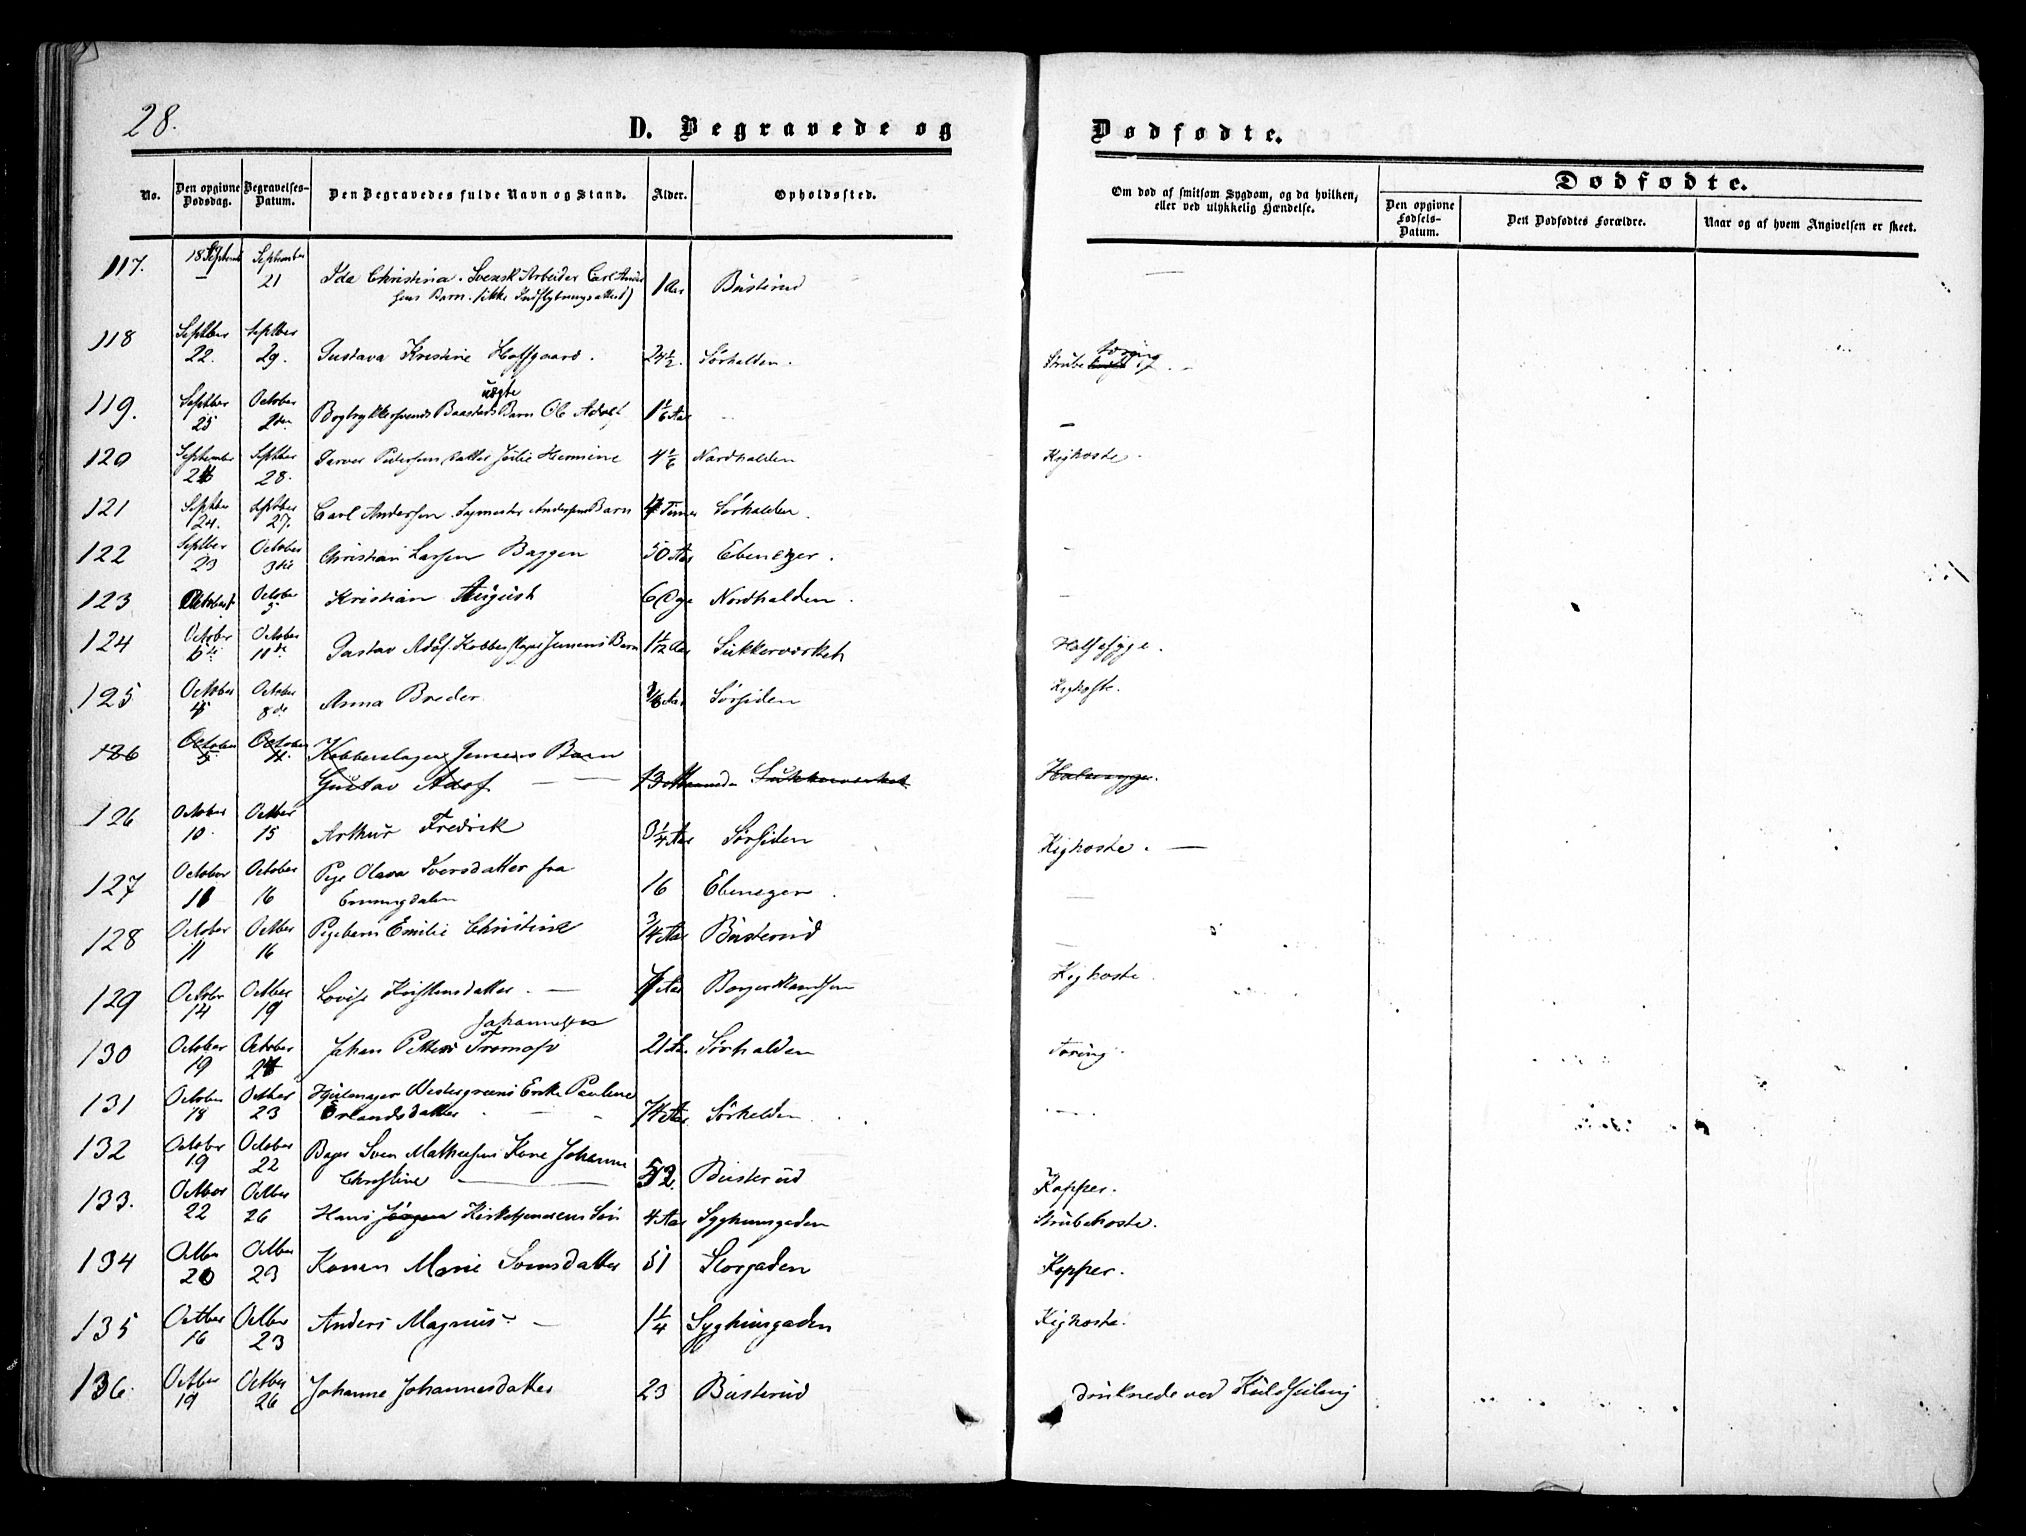 28.
D. Begravede og
Dødfødte.
No.
Den opgivne Dødsdag.
Begravelses-Datum.
Den Begravedes fulde Navn og Stand.
Alder.
Opholdssted.
Om død af smitsom Sygdom, og da hvilken,
eller ved ulykkelig Hændelse.
Dødfødte.
Den opgivne Fødsels-Datum.
Den Dødfødtes Forældre.
Naar og af hvem Angivelsen er skeet.
117. 18 Septemb September 21 Ida Christina. Svensk Arbeider Carl Ander
sens Barn. (ikke Indflytningsattest) 1 Aar Busterud
118 Septber 22. Septber 29. Gustava Kristine Holfgaard. 24½. Sørhalden. Strube
119. Septber 25 October 2den Bogtrykkersvend Baastads uægte Barn Ole Adolf 1 1/6 Aar
120 September Septber 28. Petersens Datter Julie Hermine 4 1/6 Nordhalden Kighoste.
121 Septber 24. Septber 27. Carl Andersen. Andersens Barn 4 Timer Sørhalden.
122 Septber 23 October 3die Christian Larsen Baggen 50 Aar Ebenezer.
123 October October 5 Kristian August 6 Dge Nordhalden.
124 October 6te October 11te Gustav Adolf Kobberslager Jensens Barn 1 1/12 Aar Sukkerverket Halssyge.
125 October October 8de Anna Breder Aar Sørsiden Kighoste.
126 October 5 October 11. Kobberslager Jensens Barn
Gustav Adolf 13 Maaneder Sukkerverket Halssyge.
126 October 10. Octber 15 Arthur Fredrik 3¼ Aar Sørsiden Kighoste.
127 October October 16 Pige Olava Iversdatter fra
Enningdalen 16 Ebenezer.
128 October 11 Octber 16 Pigebarn Emilie Christine ¾ Aar Busterud
129 Octobr 14 Octber 19 Lovise Kristensdatter. Aar Kighoste.
130 October 19 October Johan Petter Johannesen Tromsø 21 Aar Sørhalden
131 October 18 Octber 23 Hjulmager Westergreens Enke Pauline
Erlandsdatter Aar Sørhalden
132 October 19 October 22 Bager Sven Mathiesens Kone Johanne
Christine 52. Busterud Kopper.
133. Octber 22 Octber 26 Hans Jørgen Søn 4 Aar Syghusgaden Strubehoste.
134 Octber 20 Octber 23 Konen Marie Svensdatter 51 Storgaden Kopper.
135 Octber 16 Octber 23 Anders Magnus. 1¼ Syghusgaden Kighoste.
136. Octber 19 Octber 26 Johanne Johannesdatter 23 Busterud druknede ved Kuldseiling